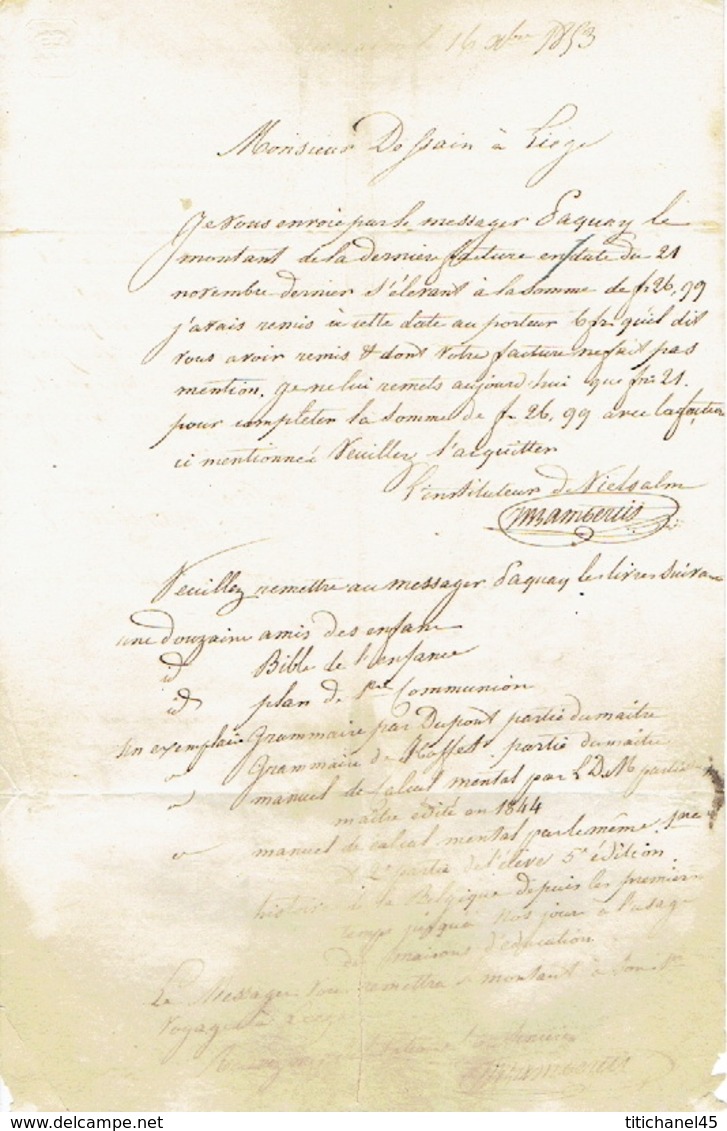 16 Xbre 1853
Monsieur Dessain à Liege
Je vous envoie par le messager Paquay le
montant de la derniere facture en date du 21
novembre dernier s'élevant à la somme de fr 26,99
j'avais remis à cette date au porteur 6 fr. qu'il dit
vous avoir remis & dont votre facture ne fait pas
mention. je ne lui remets aujourd'hui que fr 21.
pour completer la somme de fr 26,99 avec la facture
ci mentionneé Veuillez l'acquitter
l'instituteur de Vielsalm
Veuillez remettre au messager Paquay les livres suivans
une douzaine amis des enfans
id Bible de l'enfance
id plan de 1re Communion
un exemplaire Grammaire par Dupont partie du maître
" Grammaire de partie du maître
" manuel de calcul mental par L D M partie
maître edité en 1844
" manuel de calcul mental par le même 1re
& 2e partie de l'élève 5e édition
histoire de la Belgique depuis les premiers
temps jusqu'à nos jour à l'usage
des maisons d'education
Le Messager vous remettra le montant à son 1er
voyage à
titichanel45